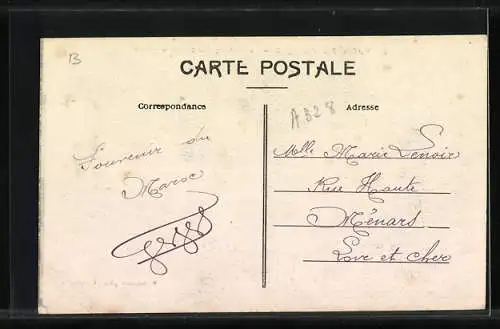 B
CARTE POSTALE
Correspondance
Adresse
A328
Souvenir du
Maroc
Melle Marie Lenoir
Rue Haute
Ménars
Loir et cher